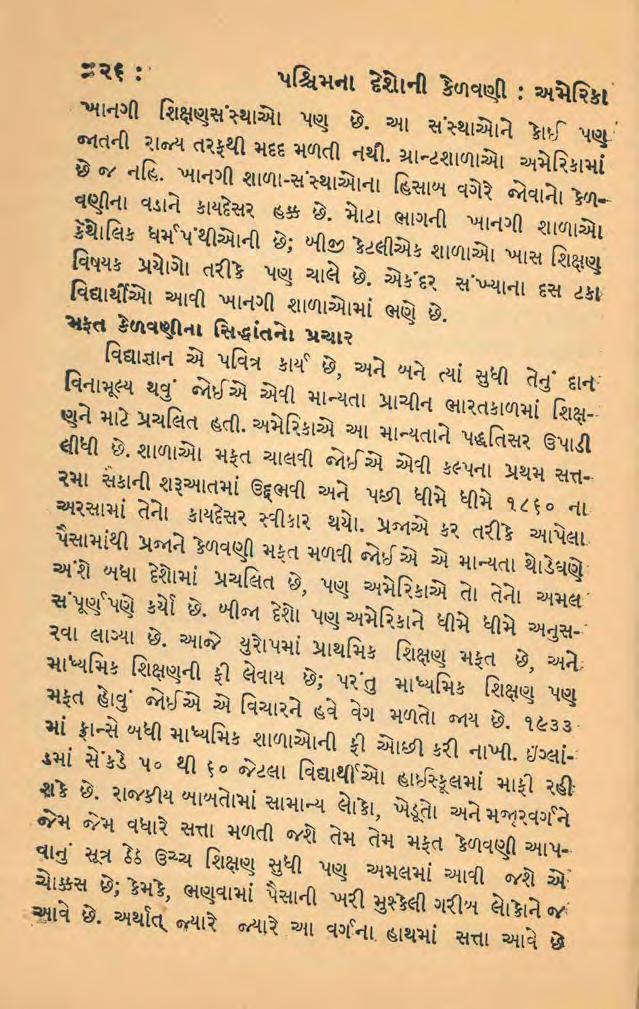 :૨૬ :
પશ્ચિમના દેશોની કેળવણી : અમેરિકા
ખાનગી શિક્ષણસંસ્થાઓ પણ છે. આ સંસ્થાઓને કોઈ પણ
જાતની રાજ્ય તરફથી મદદ મળતી નથી. ગ્રાન્ટશાળાઓ અમેરિકામાં
છે જ નહિ. ખાનગી શાળા-સંસ્થાઓના હિસાબ વગેરે જોવાનો કેળ-
વણીના વડાને કાયદેસર હક્ક છે. મોટા ભાગની ખાનગી શાળાઓ
કૅથોલિક ધર્મપંથીઓની છે; બીજી કેટલીએક શાળાઓ ખાસ શિક્ષણ
વિષયક પ્રયોગો તરીકે પણ ચાલે છે. એકંદર સંખ્યાના દસ ટકા
વિદ્યાર્થીઓ આવી ખાનગી શાળાઓમાં ભણે છે.
મફત કેળવણીના સિદ્ધાંતનો પ્રચાર
વિદ્યાજ્ઞાન એ પવિત્ર કાર્ય છે, અને બને ત્યાં સુધી તેનું દાન
વિનામૂલ્ય થવું જોઈએ એવી માન્યતા પ્રાચીન ભારતકાળમાં શિક્ષ-
ણને માટે પ્રચલિત હતી. અમેરિકાએ આ માન્યતાને પદ્ધતિસર ઉપાડી
લીધી છે. શાળાઓ મફત ચાલવી જોઈએ એવી કલ્પના પ્રથમ સત્ત-
રમા સૈકાની શરૂઆતમાં ઉદ્ભવી અને પછી ધીમે ધીમે ૧૮૬૦ ના
અરસામાં તેનો કાયદેસર સ્વીકાર થયો. પ્રજાએ કર તરીકે આપેલા
પૈસામાંથી પ્રજાને કેળવણી મફત મળવી જોઈએ એ માન્યતા થોડેઘણે
અંશે બધા દેશોમાં પ્રચલિત છે, પણ અમેરિકાએ તો તેનો અમલ
સંપૂર્ણપણે કર્યો છે. બીજા દેશો પણ અમેરિકાને ધીમે ધીમે અનુસ-
રવા લાગ્યા છે. આજે યુરોપમાં પ્રાથમિક શિક્ષણ મફત છે, અને
માધ્યમિક શિક્ષણની ફી લેવાય છે; પરંતુ માધ્યમિક શિક્ષણ પણ
મફત હોવું જોઈએ એ વિચારને હવે વેગ મળતો જાય છે. ૧૯૩૩
માં ફ્રાન્સે બધી માધ્યમિક શાળાઓની ફી ઓછી કરી નાખી. ઇંગ્લાં-
ડમાં સેંકડે ૫૦ થી ૬૦ જેટલા વિદ્યાર્થીઓ હાઈસ્કૂલમાં માફી રહી
શકે છે. રાજકીય બાબતોમાં સામાન્ય લોકો, ખેડૂતો અને મજૂરવર્ગને
જેમ જેમ વધારે સત્તા મળતી જશે તેમ તેમ મફત કેળવણી આપ-
વાનું સૂત્ર ઠેઠ ઉચ્ચ શિક્ષણ સુધી પણ અમલમાં આવી જશે એ
ચોક્કસ છે; કેમકે, ભણવામાં પૈસાની ખરી મુશ્કેલી ગરીબ લોકોને જ
આવે છે. અર્થાત્ જ્યારે જ્યારે આ વર્ગના હાથમાં સત્તા આવે છે